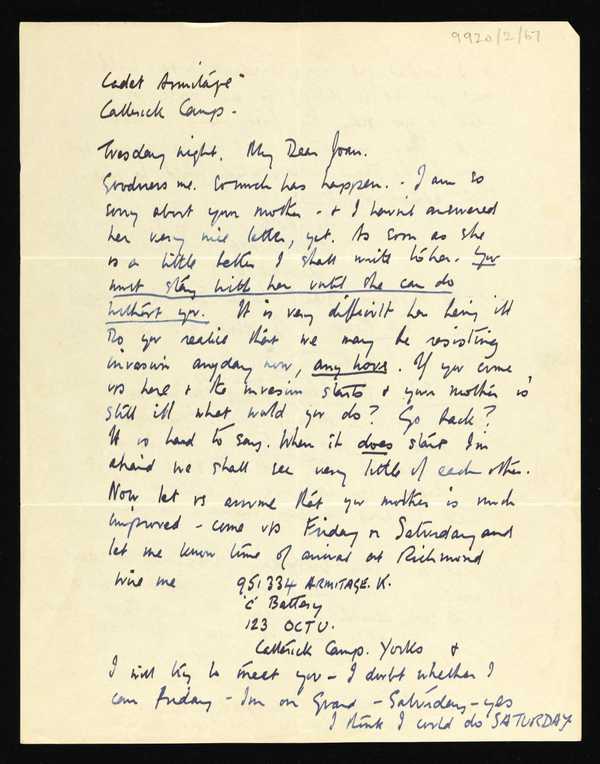 9920/2/67
Cadet Armitage
Catterick Camp.
Tuesday night. My Dear Joan.
Goodness me. So much has happen. - I am so
sorry about your mother - & I havn't answered
her very nice letter, yet. As soon as she
is a little better I shall write to her. You
must stay with her until she can do
without you. It is very difficult her being ill
Do you realise that we may be resisting
invasion anyday now, any hour. If you come
up here & the invasion starts & your mother is
still ill what would you do? Go back?
It is hard to say. When it does start I'm
afraid we shall see very little of each other.
Now let us assume that your mother is much
improved - come up Friday or Saturday and
let me know time of arrival at Richmond
wire me 951334 ARMITAGE. K.
'C' Battery
123 OCTU.
Catterick Camp. Yorks &
I will try to meet you - I doubt whether I
can Friday - I'm on Guard - Saturday - yes
I think I could do SATURDAY